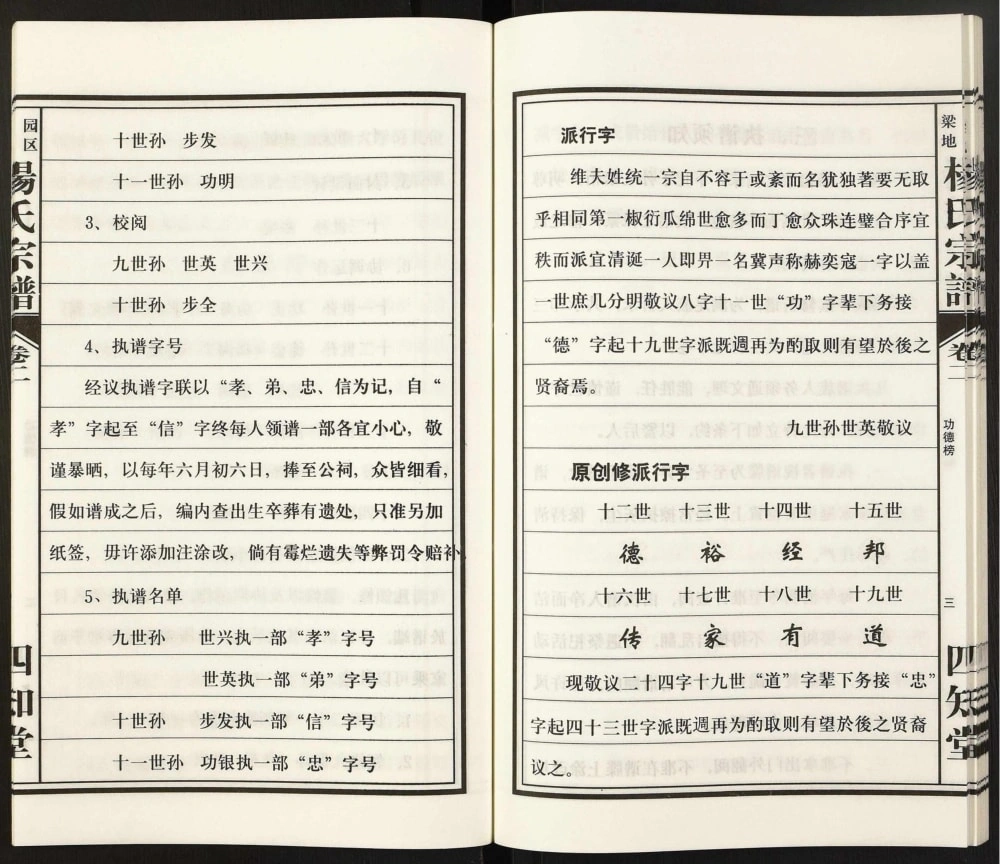 园区
楊氏宗譜
卷二
四知堂
十世孙 步发
十一世孙 功明
3、校阅
九世孙 世英 世兴
十世孙 步全
4、执谱字号
经议执谱字联以“孝、弟、忠、信为记，自“
孝”字起至“信”字终每人领谱一部各宜小心，敬
谨暴晒，以每年六月初六日，捧至公祠，众皆细看，
假如谱成之后，编内查出生卒葬有遗处，只准另加
纸签，毋许添加注涂改，倘有霉烂遗失等弊罚令赔补
5、执谱名单
九世孙 世兴执一部“孝”字号
世英执一部“弟”字号
十世孙 步发执一部“信”字号
十一世孙 功银执一部“忠”字号
派行字
维夫姓统一宗自不容于或紊而名犹独著要无取
乎相同第一椒衍瓜绵世愈多而丁愈众珠连璧合序宜
秩而派宜清诞一人即畀一名冀声称赫奕寇一字以盖
一世庶几分明敬议八字十一世“功”字辈下务接
“德”字起十九世字派既週再为酌取则有望於後之
贤裔焉。
九世孙世英敬议
原创修派行字
十二世 十三世 十四世 十五世
德 裕 经 邦
十六世 十七世 十八世 十九世
传 家 有 道
现敬议二十四字十九世“道”字辈下务接“忠”
字起四十三世字派既週再为酌取则有望於後之贤裔
议之。
梁地
楊氏宗譜
卷二
功德榜
三
四知堂